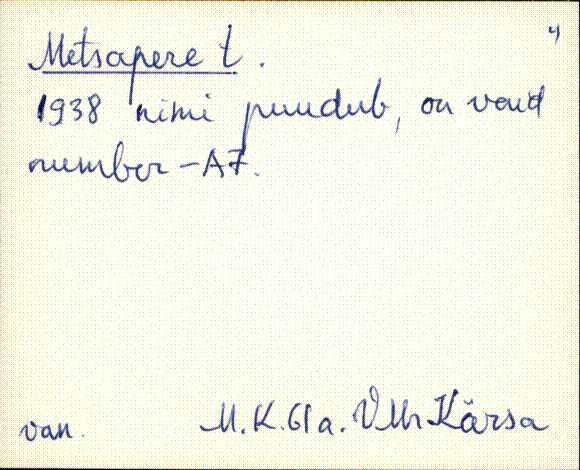 4)
Metsapere t.
1938 nimi puudub, on vaid
number - A7.
van. M.K. 61a. VMr Kärsa